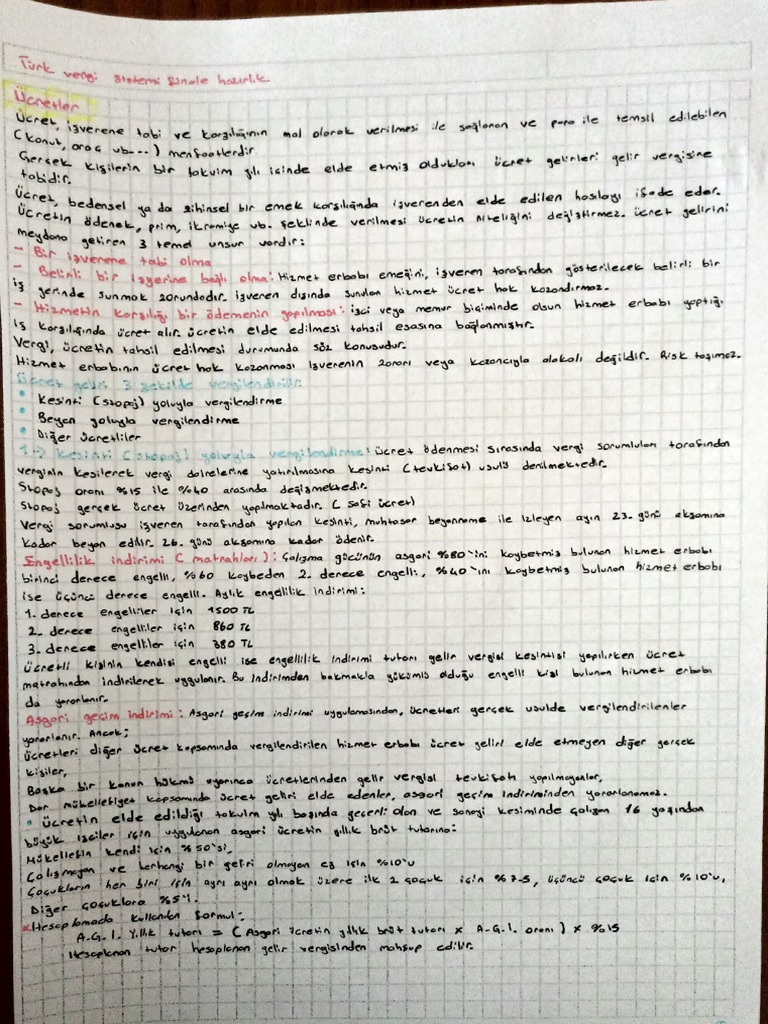 Türk vergi sistemi finale hazırlık
Ücretler
Ücret, işverene tabi ve karşılığının mal olarak verilmesi ile sağlanan ve para ile temsil edilebilen
(konut, araç vb...) menfaatlerdir.
Gerçek kişilerin bir takvim yılı içinde elde etmiş oldukları ücret gelirleri gelir vergisine
tabidir.
Ücret, bedensel ya da zihinsel bir emek karşılığında işverenden elde edilen hasılayı ifade eder.
Ücretin ödenek, prim, ikramiye vb. şeklinde verilmesi ücretin niteliğini değiştirmez. Ücret gelirini
meydana getiren 3 temel unsur vardır:
- Bir işverene tabi olma
- Belirli bir işyerine bağlı olma: Hizmet erbabı emeğini, işveren tarafından gösterilecek belirli bir
iş yerinde sunmak zorundadır. İşveren dışında sunulan hizmet ücret hak kazandırmaz.
- Hizmetin karşılığı bir ödemenin yapılması: İşci veya memur biçiminde olsun hizmet erbabı yaptığı
iş karşılığında ücret alır. Ücretin elde edilmesi tahsil esasına bağlanmıştır.
Vergi, ücretin tahsil edilmesi durumunda söz konusudur.
Hizmet erbabının ücret hak kazanması işverenin zararı veya kazancıyla alakalı değildir. Risk taşımaz.
Ücret geliri 3 şekilde vergilendirilir
• Kesinti (stopaj) yoluyla vergilendirme
• Beyan yoluyla vergilendirme
• Diğer ücretliler
1-) Kesinti (stopaj) yoluyla vergilendirme: Ücret ödenmesi sırasında vergi sorumluları tarafından
verginin kesilerek vergi dairelerine yatırılmasına kesinti (tevkifat) usulü denilmektedir.
Stopaj oranı %15 ile %40 arasında değişmektedir.
Stopaj gerçek ücret üzerinden yapılmaktadır. (safi ücret)
Vergi sorumlusu işveren tarafından yapılan kesinti, muhtasar beyanname ile izleyen ayın 23. günü akşamına
kadar beyan edilir. 26. günü akşamına kadar ödenir.
Engellilik indirimi (matrahları): Çalışma gücünün asgari %80'ini kaybetmiş bulunan hizmet erbabı
birinci derece engelli, %60 kaybeden 2. derece engelli, %40'ını kaybetmiş bulunan hizmet erbabı
ise üçüncü derece engelli. Aylık engellilik indirimi:
1. derece engelliler için 1500 TL
2. derece engelliler için 860 TL
3. derece engelliler için 380 TL
Ücretli kişinin kendisi engelli ise engellilik indirimi tutarı gelir vergisi kesintisi yapılırken ücret
matrahından indirilerek uygulanır. Bu indirimden bakmakla yükümlü olduğu engelli kişi bulunan hizmet erbabı
da yararlanır.
Asgari geçim indirimi: Asgari geçim indirimi uygulamasından, ücretleri gerçek usulde vergilendirilenler
yararlanır. Ancak;
Ücretleri diğer ücret kapsamında vergilendirilen hizmet erbabı ücret geliri elde etmeyen diğer gerçek
kişiler,
Başka bir kanun hükmü uyarınca ücretlerinden gelir vergisi tevkifatı yapılmayanlar,
Dar mükellefiyet kapsamında ücret geliri elde edenler, asgari geçim indiriminden yararlanamaz.
• Ücretin elde edildiği takvim yılı başında geçerli olan ve sanayi kesiminde çalışan 16 yaşından
büyük işciler için uygulanan asgari ücretin yıllık brüt tutarına:
Mükellefin kendi için %50'si,
Çalışmayan ve herhangi bir geliri olmayan eş için %10'u
Çocukların her biri için ayrı ayrı olmak üzere ilk 2 çocuk için %7.5, üçüncü çocuk için %10'u,
Diğer çocuklara %5'i.
Hesaplamada kullanılan formül:
A.G.İ. Yıllık tutarı = (Asgari ücretin yıllık brüt tutarı x A.G.İ. oranı) x %15
Hesaplanan tutar hesaplanan gelir vergisinden mahsup edilir.